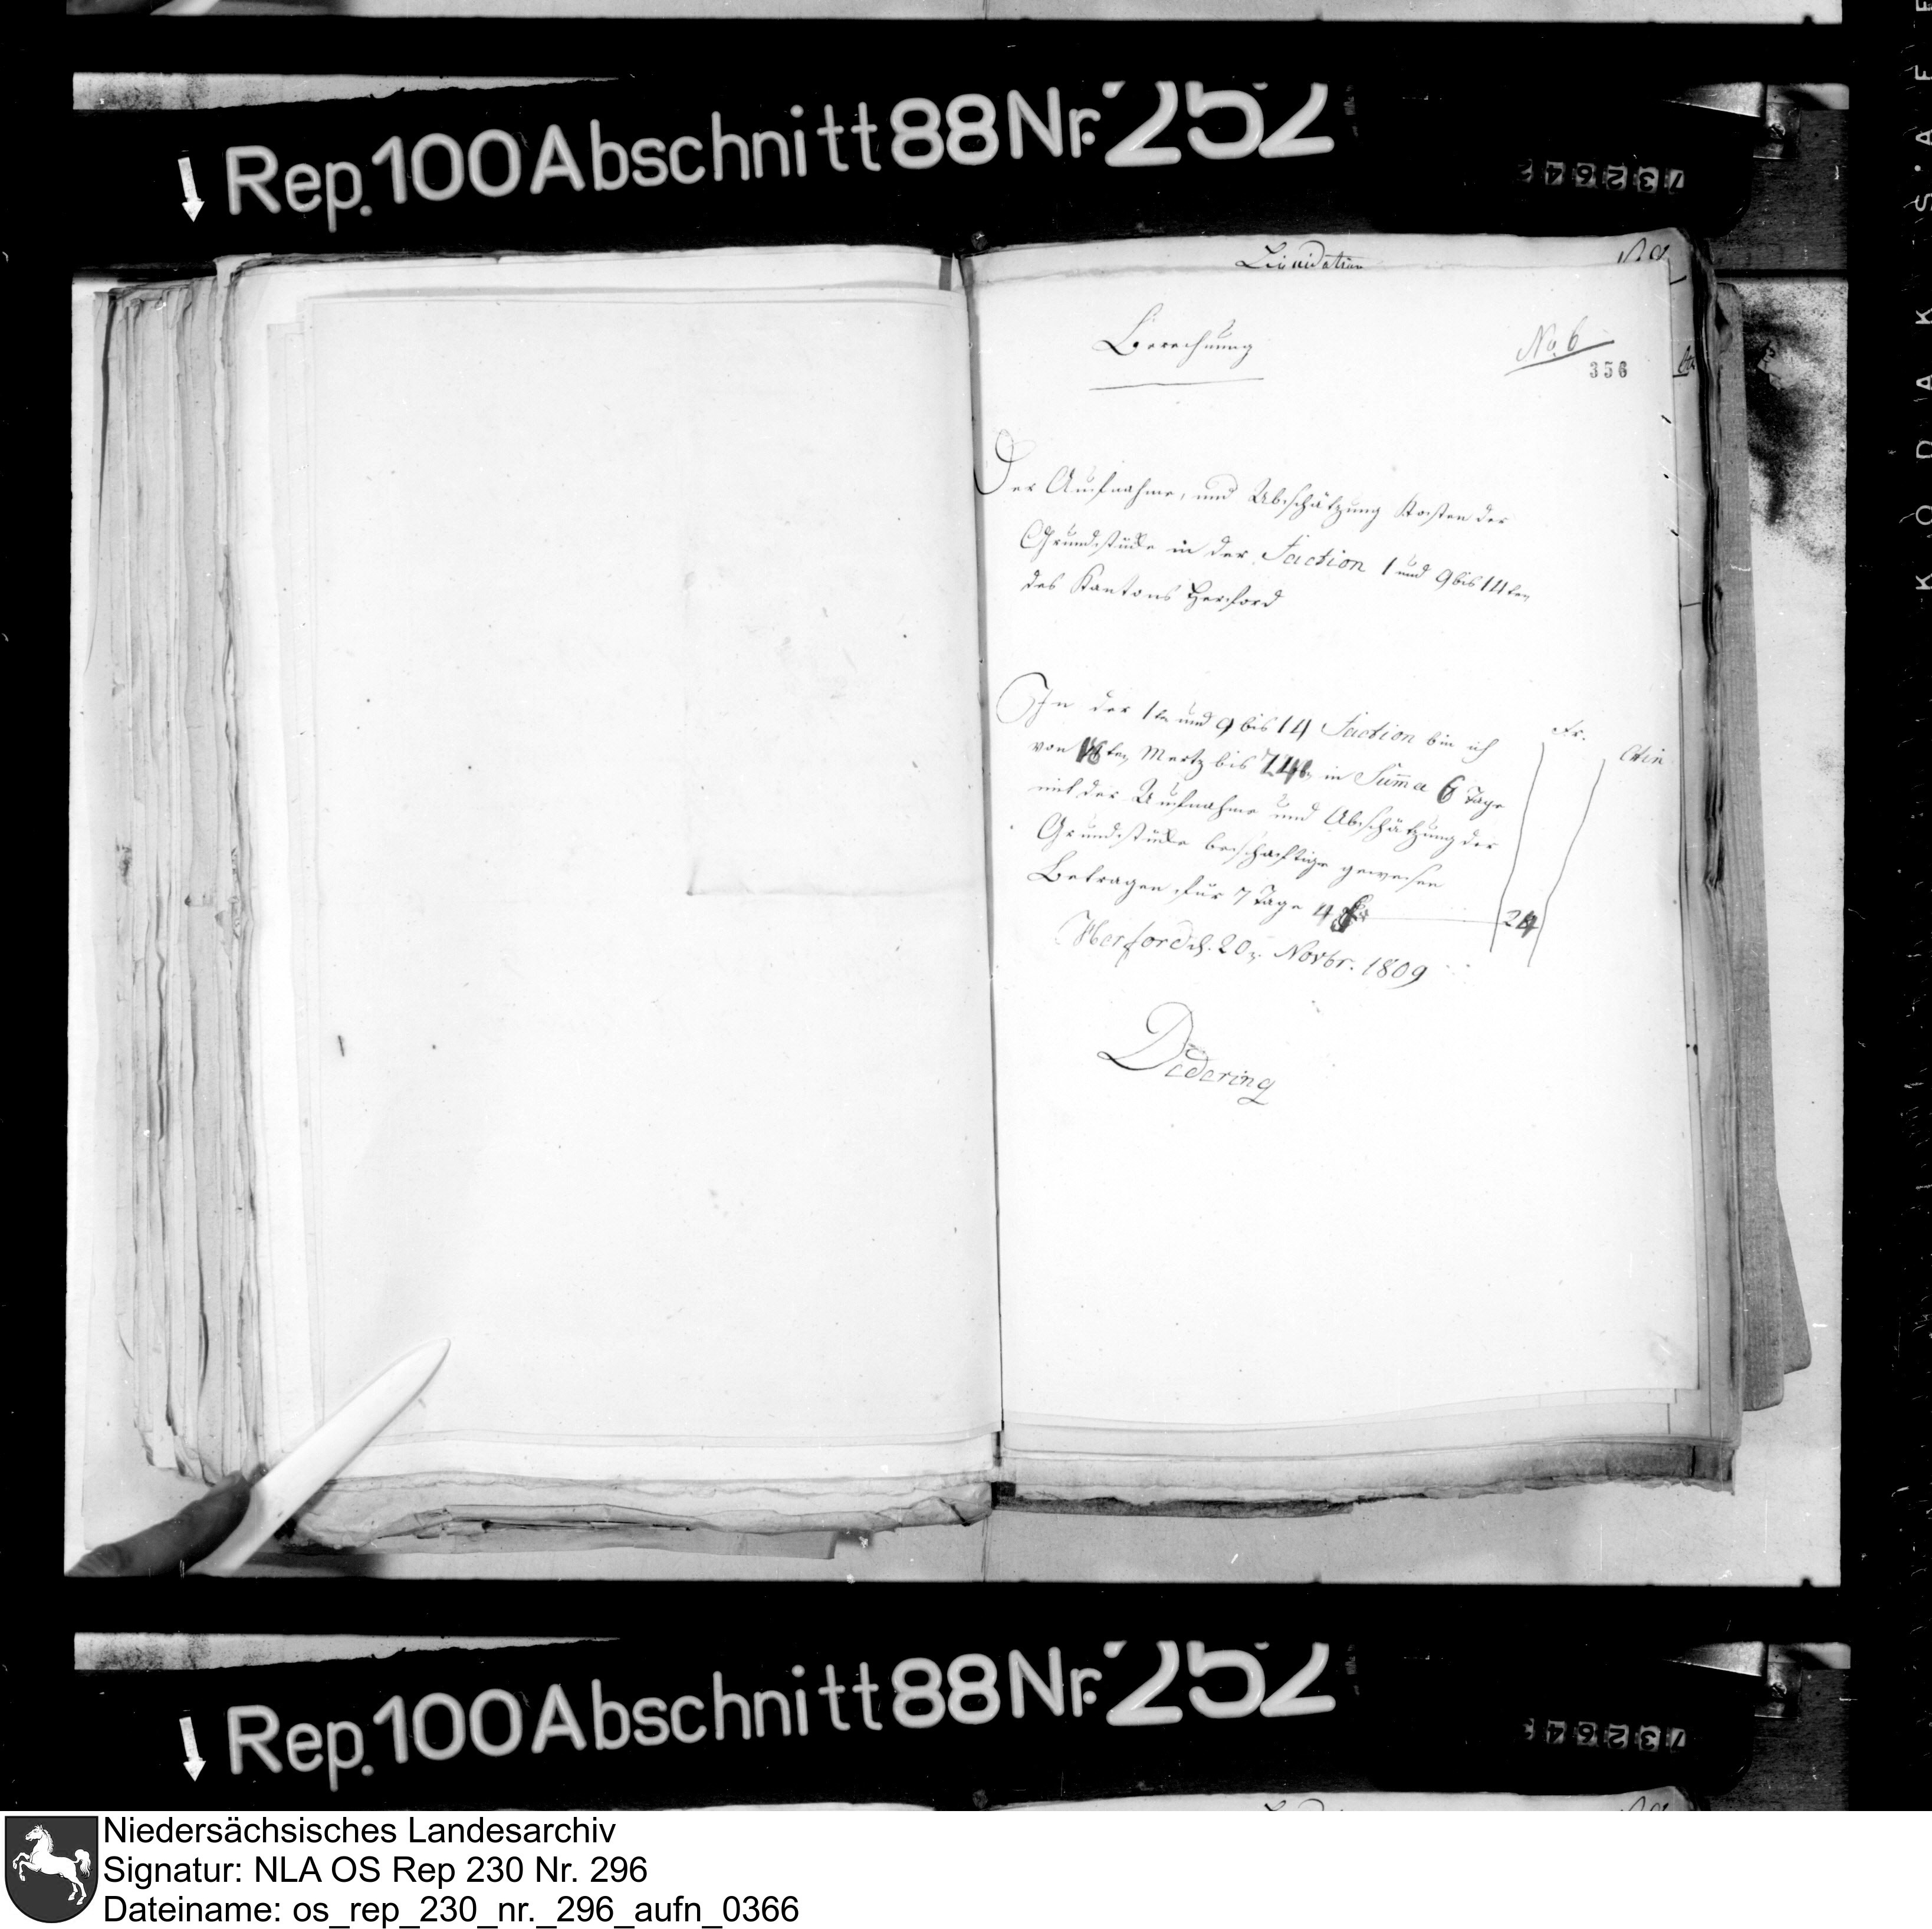 Rep. 100 Abschnitt 88 Nr. 252
Liquidation
Berechnung
No. 6
356
Der Aufnahme, und Abschätzung Kosten der
Grundstücke in der Section 1 und 9 bis 14ten
des Kantons Herford
In der 1ten und 9 bis 14 Section bin ich
von ten Mertz bis in Suma 6 Tage
mit der Aufnahme und Abschätzung der
Grundstücke beschaftige gewesen
Betragen für 7 Tage 4
Fr.
24
Herford d. 20. Novbr. 1809
Dedering
Rep. 100 Abschnitt 88 Nr. 252
KODAK S.A.F.
Niedersächsisches Landesarchiv
Signatur: NLA OS Rep 230 Nr. 296
Dateiname: os_rep_230_nr._296_aufn_0366